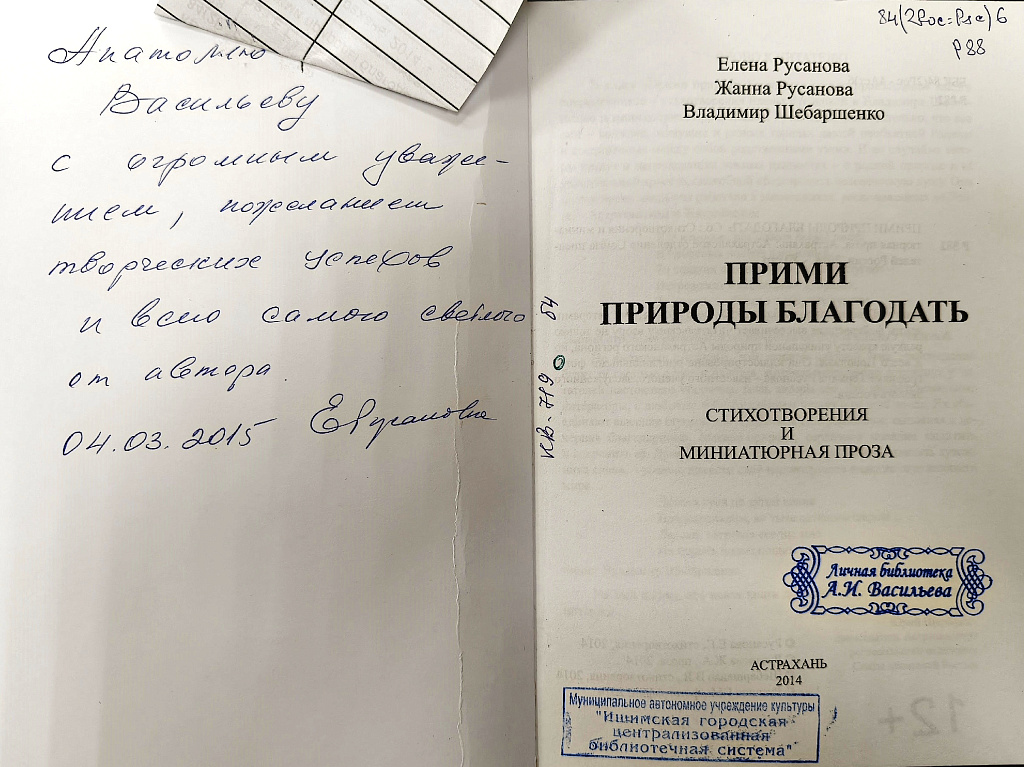 Анатолию
Васильеву
с огромным уваже-
нием, пожеланием
творческих успехов
и всего самого светлого
от автора.
04.03.2015 ЕРусанова
84(2Рос=Рус)6
Р88
Елена Русанова
Жанна Русанова
Владимир Шебаршенко
ПРИМИ
ПРИРОДЫ БЛАГОДАТЬ
КВ-719 б4
СТИХОТВОРЕНИЯ
И
МИНИАТЮРНАЯ ПРОЗА
Личная библиотека
А.И. Васильева
АСТРАХАНЬ
2014
Муниципальное автономное учреждение культуры
"Ишимская городская
централизованная
библиотечная система"
12+